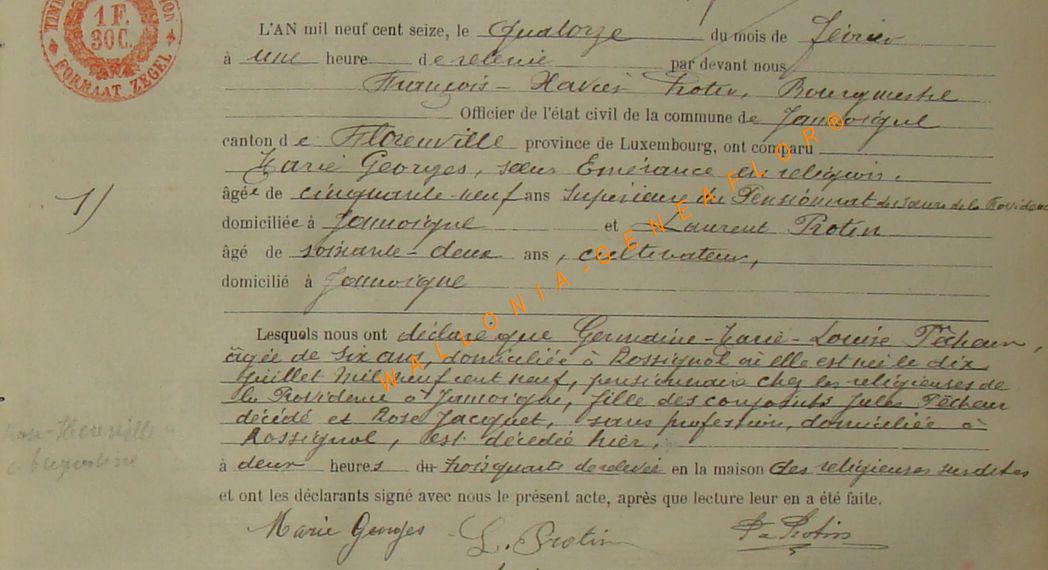 1 F.
30 C.
FORMAAT ZEGEL
L'AN mil neuf cent seize, le quatorze du mois de février
à une heure de relevée par devant nous
François-Xavier Protin, Bourgmestre
Officier de l'état civil de la commune de Jamoigne
canton de Florenville province de Luxembourg, ont comparu
Marie Georges, sœur Emérance en religion,
âgée de cinquante-neuf ans Supérieure du Pensionnat des Sœurs de la Providence
domiciliée à Jamoigne et Laurent Protin
1)
âgé de soixante-deux ans, cultivateur,
domicilié à Jamoigne
Lesquels nous ont déclaré que Germaine-Marie-Louise Pêcheur,
âgée de six ans, domiciliée à Rossignol où elle est née le dix
Juillet mil neuf cent neuf, pensionnaire chez les religieuses de
la Providence à Jamoigne, fille des conjoints Jules Pêcheur
décédé et Rose Jacquet, sans profession, domiciliée à
Rossignol, est décédée hier,
à deux heures trois quarts de relevée en la maison des religieuses susdites
et ont les déclarants signé avec nous le présent acte, après que lecture leur en a été faite.
Marie Georges L. Protin Protin
WALLONIA-GENEAFLOR®